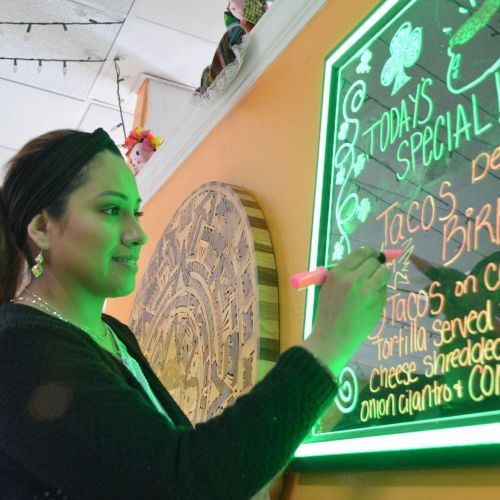 TODAY'S
SPECIAL!
TACOS De
BIR
TACOS on C
Tortilla Served
cheese shredded
onion cilantro + CON